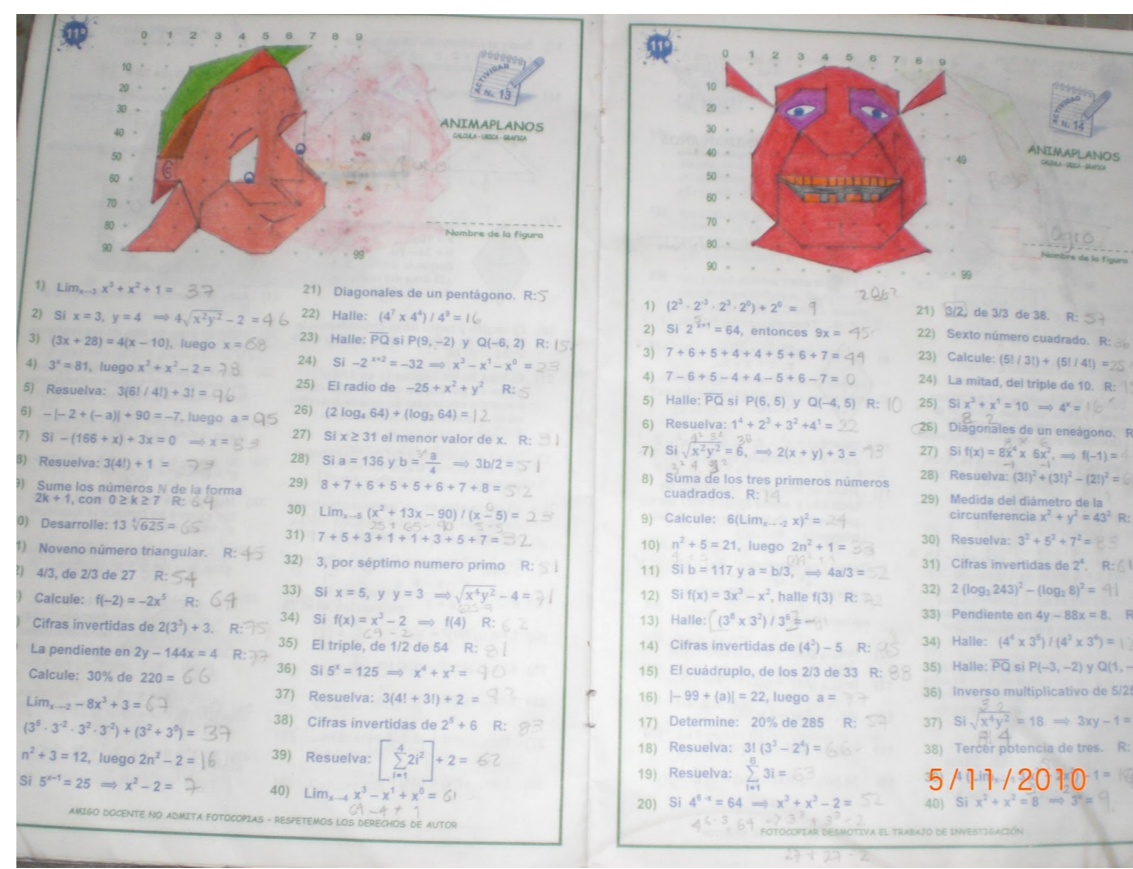 11º
0 1 2 3 4 5 6 7 8 9
10
20
30
40
50
60
70
80
90
49
99
ACTIVIDAD
No. 13
ANIMAPLANOS
CALCULA - UBICA - GRAFICA
Nombre de la figura
1) Lim x³ + x² + 1 = 37
2) Si x = 3, y = 4 ⟹ 4√x²y² – 2 = 46
3) (3x + 28) = 4(x – 10), luego x = 68
4) 3ˣ = 81, luego x³ + x² – 2 = 78
5) Resuelva: 3(6! / 4!) + 3! = 96
6) – |– 2 + (– a)| + 90 = –7, luego a = 95
7) Si – (166 + x) + 3x = 0 ⟹ x =
8) Resuelva: 3(4!) + 1 = 73
9) Sume los números ℕ de la forma
2k + 1, con 0 ≥ k ≥ 7 R: 64
0) Desarrolle: 13 ∜625 = 65
1) Noveno número triangular. R: 45
2) 4/3, de 2/3 de 27 R: 54
) Calcule: f(–2) = –2x⁵ R: 64
Cifras invertidas de 2(3³) + 3. R: 75
La pendiente en 2y – 144x = 4 R:
Calcule: 30% de 220 = 66
Lim – 8x³ + 3 = 67
(3⁵ · 3⁻² · 3² · 3⁻²) + (3² + 3⁰) = 37
n² + 3 = 12, luego 2n² – 2 = 16
Si 5ˣ⁻¹ = 25 ⟹ x² – 2 = 7
21) Diagonales de un pentágono. R: 5
22) Halle: (4⁷ x 4⁴) / 4⁹ = 16
23) Halle: PQ si P(9, –2) y Q(–6, 2) R: 15
24) Si –2ˣ⁺² = –32 ⟹ x³ – x¹ – x⁰ = 23
25) El radio de –25 + x² + y² R: 5
26) (2 log₄ 64) + (log₂ 64) = 12
27) Si x ≥ 31 el menor valor de x. R: 31
28) Si a = 136 y b = a/4 ⟹ 3b/2 = 51
29) 8 + 7 + 6 + 5 + 5 + 6 + 7 + 8 = 52
30) Lim (x² + 13x – 90) / (x – 5) = 23
31) 7 + 5 + 3 + 1 + 1 + 3 + 5 + 7 = 32
32) 3, por séptimo numero primo R: 51
33) Si x = 5, y y = 3 ⟹ √x⁴y² – 4 = 71
34) Si f(x) = x³ – 2 ⟹ f(4) R: 62
35) El triple, de 1/2 de 54 R: 81
36) Si 5ˣ = 125 ⟹ x⁴ + x² = 90
37) Resuelva: 3(4! + 3!) + 2 = 92
38) Cifras invertidas de 2⁵ + 6 R: 83
39) Resuelva: [∑ 2i²] + 2 = 62
40) Lim x³ – x¹ + x⁰ = 61
AMIGO DOCENTE NO ADMITA FOTOCOPIAS - RESPETEMOS LOS DERECHOS DE AUTOR
11º
0 1 2 3 4 5 6 7 8 9
10
20
30
40
50
60
70
80
90
49
99
ACTIVIDAD
No. 14
ANIMAPLANOS
CALCULA - UBICA - GRAFICA
Ogro
Nombre de la figura
1) (2³ · 2⁻³ · 2³ · 2⁰) + 2⁰ = 9
2) Si 2ˣ⁺¹ = 64, entonces 9x = 45
3) 7 + 6 + 5 + 4 + 4 + 5 + 6 + 7 = 44
4) 7 – 6 + 5 – 4 + 4 – 5 + 6 – 7 = 0
5) Halle: PQ si P(6, 5) y Q(–4, 5) R: 10
6) Resuelva: 1⁴ + 2³ + 3² + 4¹ = 22
7) Si √x²y² = 6, ⟹ 2(x + y) + 3 =
8) Suma de los tres primeros números
cuadrados. R: 14
9) Calcule: 6(Lim x)² = 24
10) n² + 5 = 21, luego 2n² + 1 = 33
11) Si b = 117 y a = b/3, ⟹ 4a/3 = 52
12) Si f(x) = 3x³ – x², halle f(3) R:
13) Halle: (3⁶ x 3²) / 3⁴ =
14) Cifras invertidas de (4³) – 5 R: 95
15) El cuádruplo, de los 2/3 de 33 R: 88
16) |– 99 + (a)| = 22, luego a = 77
17) Determine: 20% de 285 R: 57
18) Resuelva: 3! (3³ – 2⁴) = 66
19) Resuelva: ∑ 3i = 63
20) Si 4⁶⁻ˣ = 64 ⟹ x³ + x³ – 2 = 52
27 + 27 – 2
21) 3/2, de 3/3 de 38. R: 57
22) Sexto número cuadrado. R: 36
23) Calcule: (5! / 3!) + (5! / 4!) = 25
24) La mitad, del triple de 10. R:
25) Si x³ + x¹ = 10 ⟹ 4ˣ = 16
26) Diagonales de un eneágono. R
27) Si f(x) = 8x⁴ x 6x², ⟹ f(–1) =
28) Resuelva: (3!)² + (3!)² – (2!)² =
29) Medida del diámetro de la
circunferencia x² + y² = 43² R:
30) Resuelva: 3² + 5² + 7² = 83
31) Cifras invertidas de 2⁴. R: 61
32) 2 (log₃ 243)² – (log₂ 8)² = 91
33) Pendiente en 4y – 88x = 8. R
34) Halle: (4⁴ x 3⁵) / (4³ x 3⁴) =
35) Halle: PQ si P(–3, –2) y Q(1, –
36) Inverso multiplicativo de 5/25
37) Si √x⁴y² = 18 ⟹ 3xy – 1 =
38) Tercer potencia de tres. R:
40) Si x² + x² = 8 ⟹ 3ˣ = 9
5/11/2010
FOTOCOPIAR DESMOTIVA EL TRABAJO DE INVESTIGACIÓN